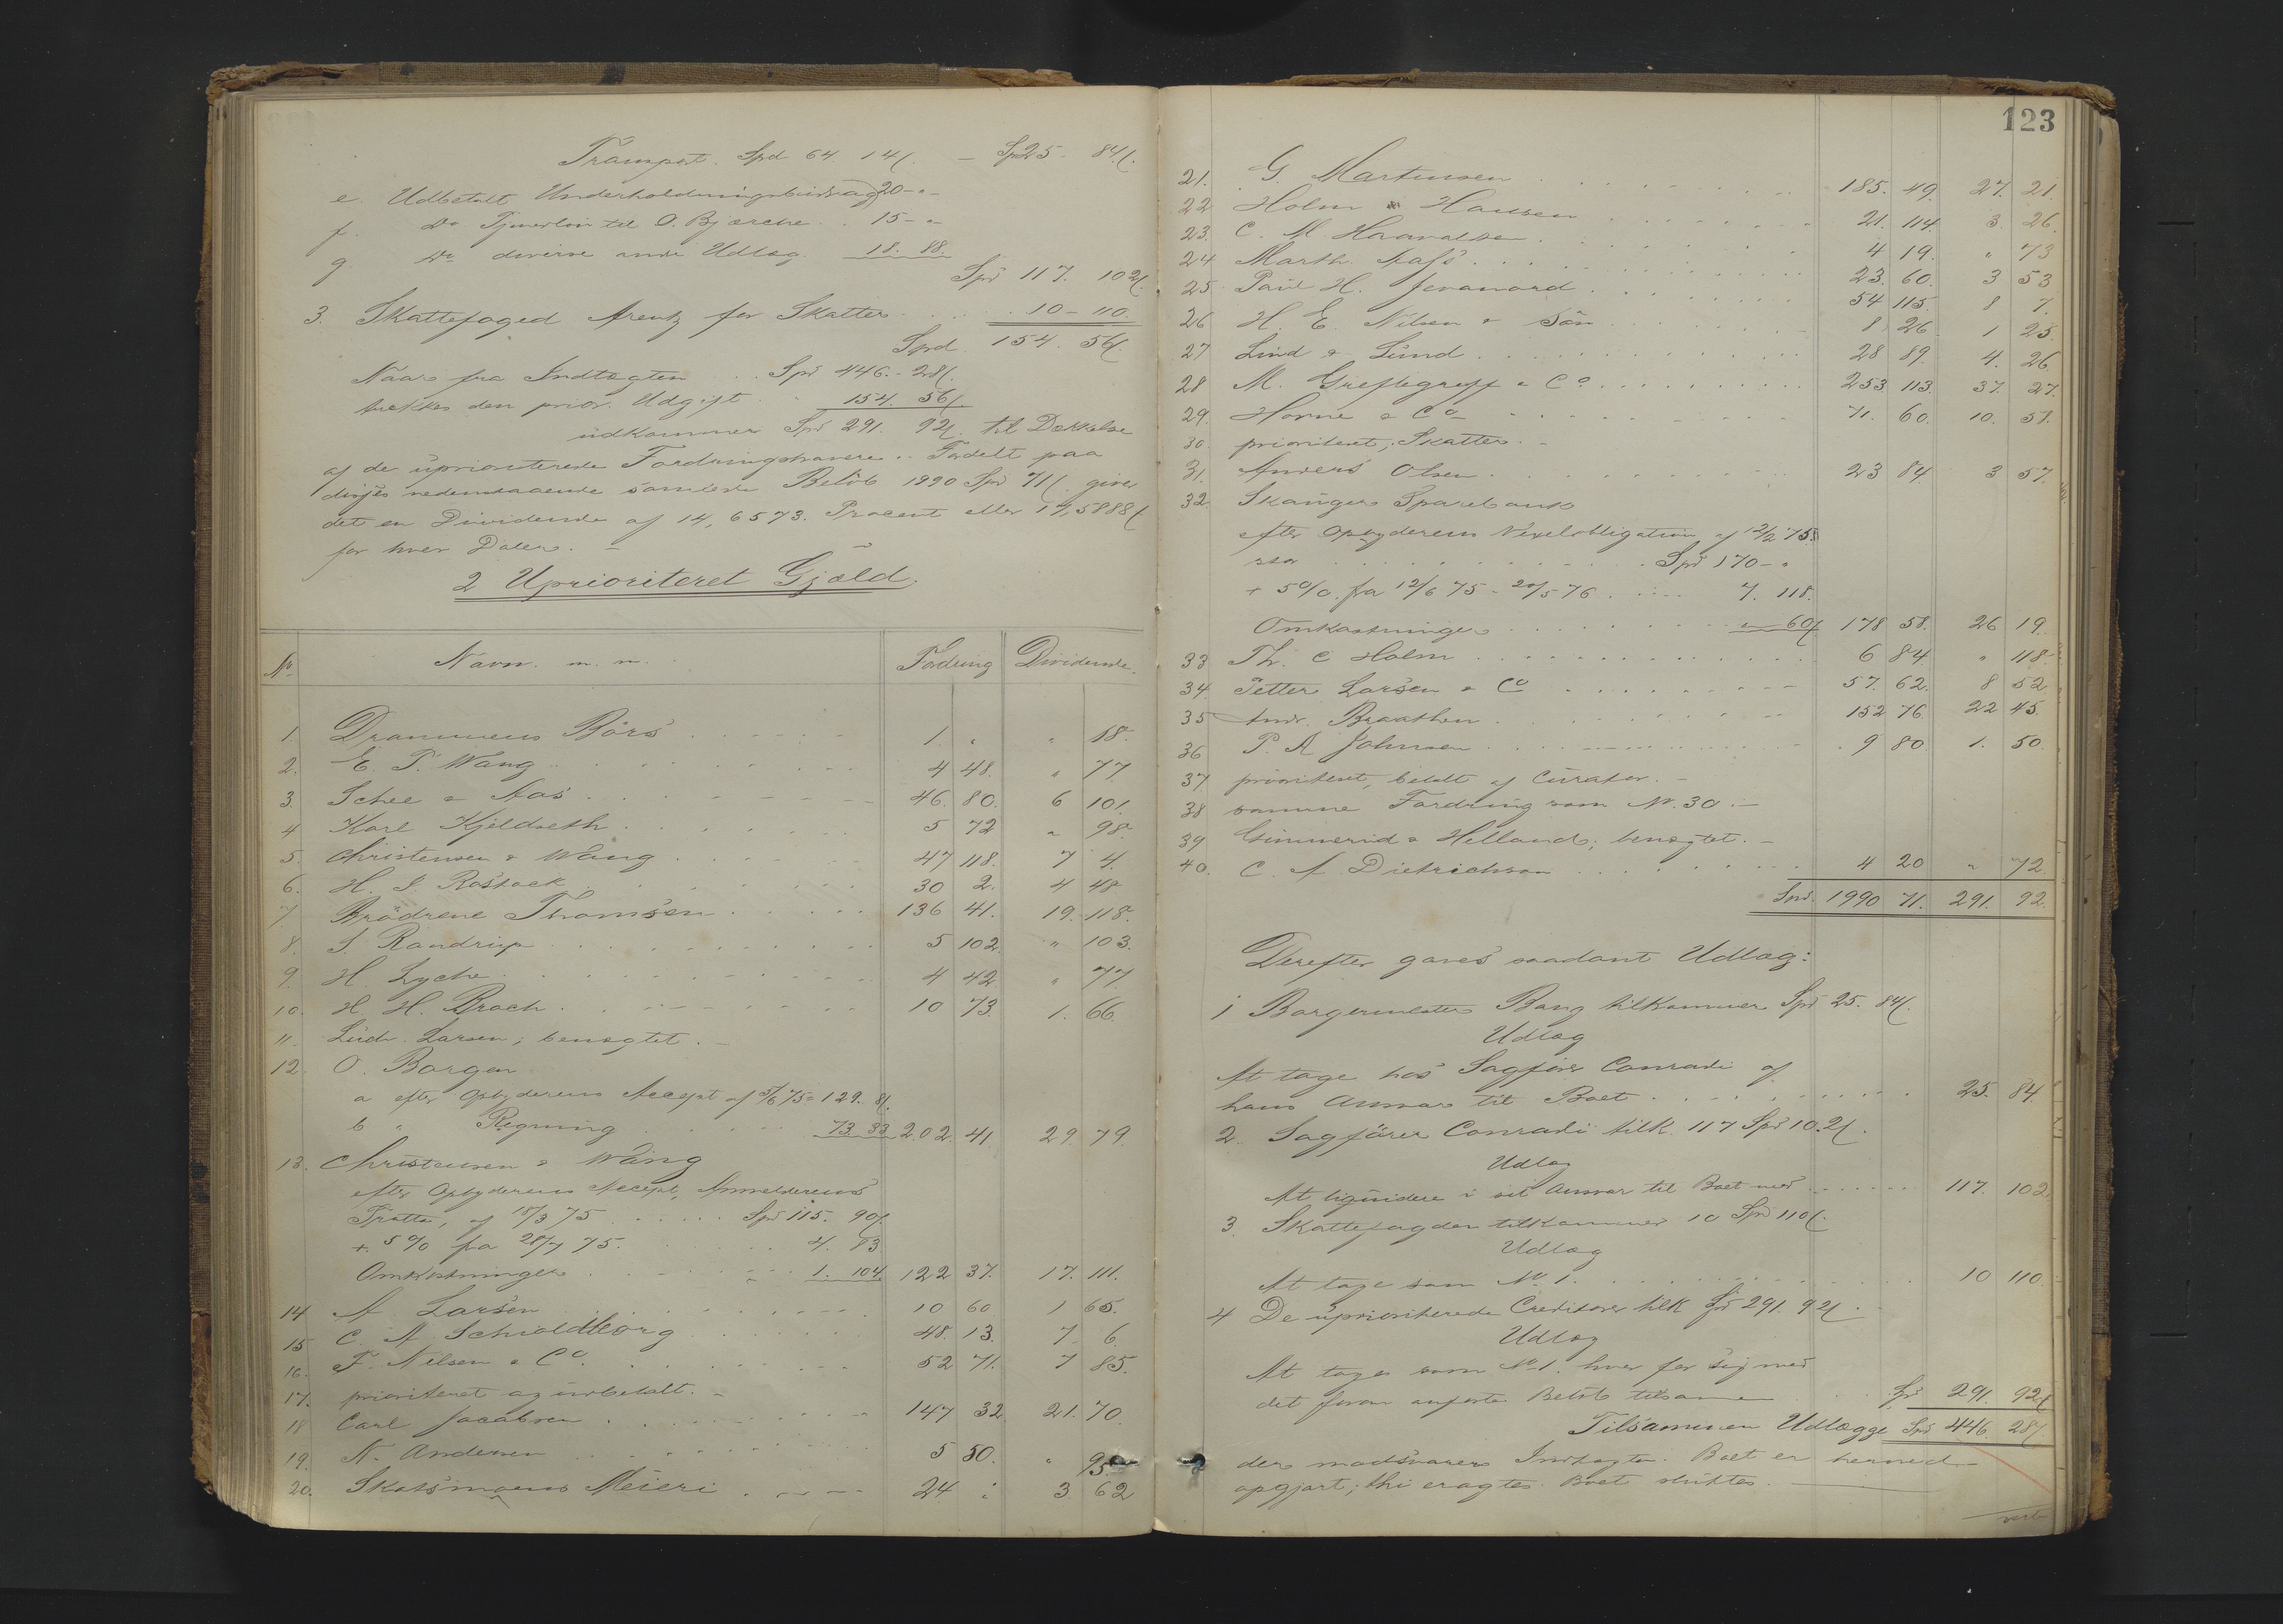 Transport. Spd 64. 14ſ. – Spd 25 - 84ſ.
e. Udbetalt Underholdningsbidrag 20 – " –
f. Do Tjenerløn til O. Bjærche . . 15 – "
g. Do diverse andre Udlæg. 18. 88.
Spd 117. 102ſ.
3. Skattefoged Arentz for Skatter . . . . 10 – 110.
Spd. 154. 56ſ.
Naar fra Indtægten . . Spd 446. - 28ſ.
trækkes den prior. Udgift . . 154. 56ſ.
udkommer Spd 291. 92ſ. til Dækkelse
af de uprioriterede Fordringshavere. Fordelt paa
disses nedenstaaende samlede Beløb 1990 Spd 71ſ. giver
det en Dividende af 14,6573. Procent eller 17,5888ſ
for hver Daler. –
2 Uprioriteret Gjæld.
No. Navn. m. m. Fordring Dividende.
1. Drammens Børs . . . 1. " " 18.
2. E. P. Wang . . . 4 48. " 77
3. Schee & Aas . . . 46. 80. 6 101.
4 Karl Kjeldseth . . . 5 72 " 98.
5. Christensen & Wang . . . 47 118. 7 4.
6. H. J. Rostock . . . 30 2. 4 48
7. Brødrene Thomsen . . . 136 41. 19. 118.
8. S. Randrup . . . 5 102. " 103.
9. H. Lyche . . . 4 42 " 77.
10. H. H. Brach . . . 10 73. 1. 66.
11. Ludv. Larsen; benægtet. –
12 O. Borgen
a efter Opbyderens Accept af 5/6 75 = 129. 8ſ.
b " Regning . . . 73. 33 202. 41. 29. 79.
13. Christensen & Wang
efter Opbyderens Accept, Anmelderens
Tratte, af 15/3 75 . . . Spd 115. 90ſ.
+ 5% fra 28/7 75. . . . 4. 83
Omkostninger . . . 1. 104. 122 37. 17. 111.
14 A. Larsen . . . 10 60. 1 65.
15 C. A. Schioldborg . . . 48. 13. 7 6.
16. F. Nilsen & Co. . . . 52 71. 7 85.
17. prioriteret og udbetalt. –
18 Carl Jacobsen . . . 147 32 21. 70.
19. N. Andersen . . . 5 50. " 95
20. Skotsmoens Meieri . . . 24 " 3 62
123
21. G. Martinsen . . . 185. 49. 27. 21.
22 Holm & Hansen . . . 21. 114. 3. 26.
23. C. M. Haavaldsen . . . 4 19. " 73
24 Marth. Aass . . . 23. 60. 3 53
25 Paul H. Jevanord . . . 54 115. 8 7.
26 H. E. Nilsen & Søn . . . 8 26 1 25.
27 Lind & Lund . . . 28 89. 4. 26
28 M. Greftegreff & Co . . . 253. 113. 37. 27.
29. Horne & Co . . . 71. 60. 10. 57.
30. prioriteret; Skatter. –
31. Anders Olsen . . . 23 84. 3 57.
32. Skauger Sparebank
efter Opbyderens Vexelobligation af 12/2 75
stor . . . Spd 170 – "
+ 5%. fra 12/6 75 – 20/5 76 . . . 7. 118.
Omkostninger . . . " 60ſ 178 58. 26 19.
33 Th. C. Holm . . . 6 84. " 118.
34. Petter Larsen & Co . . . 57. 62. 8 52
35 Andr. Braathen . . . 152 76 22 45.
36 P. A. Johnsen . . . 9 80 1. 50.
37 prioriteret, betalt af Curator. –
38 samme Fordring som No. 30. –
39 Gunnerud & Helland; benægtet. –
40. C. A. Dietrichson . . . 4 20 " 72.
Spd. 1990 71. 291. 92.
Derefter gaves saadant Udlæg:
1 Borgermester Bang tilkommer Spd 25. 84ſ.
Udlæg
At tage hos Sagfører Conradi af
hans Ansvar til Boet . . . 25. 84.
2. Sagfører Conradi tilk. 117 Spd 102ſ.
Udlæg
At liquidere i sit Ansvar til Boet med . . . 117. 102
3. Skattefogden tilkommer 10 Spd 110ſ.
Udlæg
At tage som No 1. . . . 10 110.
4 De uprioriterede Creditorer tilk. Spd 291. 92ſ.
Udlæg
At tage som No 1. hver for sig med
det foran anførte Beløb tilsammen Spd 291. 92ſ
Tilsammen Udlægges Spd 446. 28ſ
der modsvarer Indtægten. Boet er hermed
opgjort; thi eragtes: Boet sluttes.